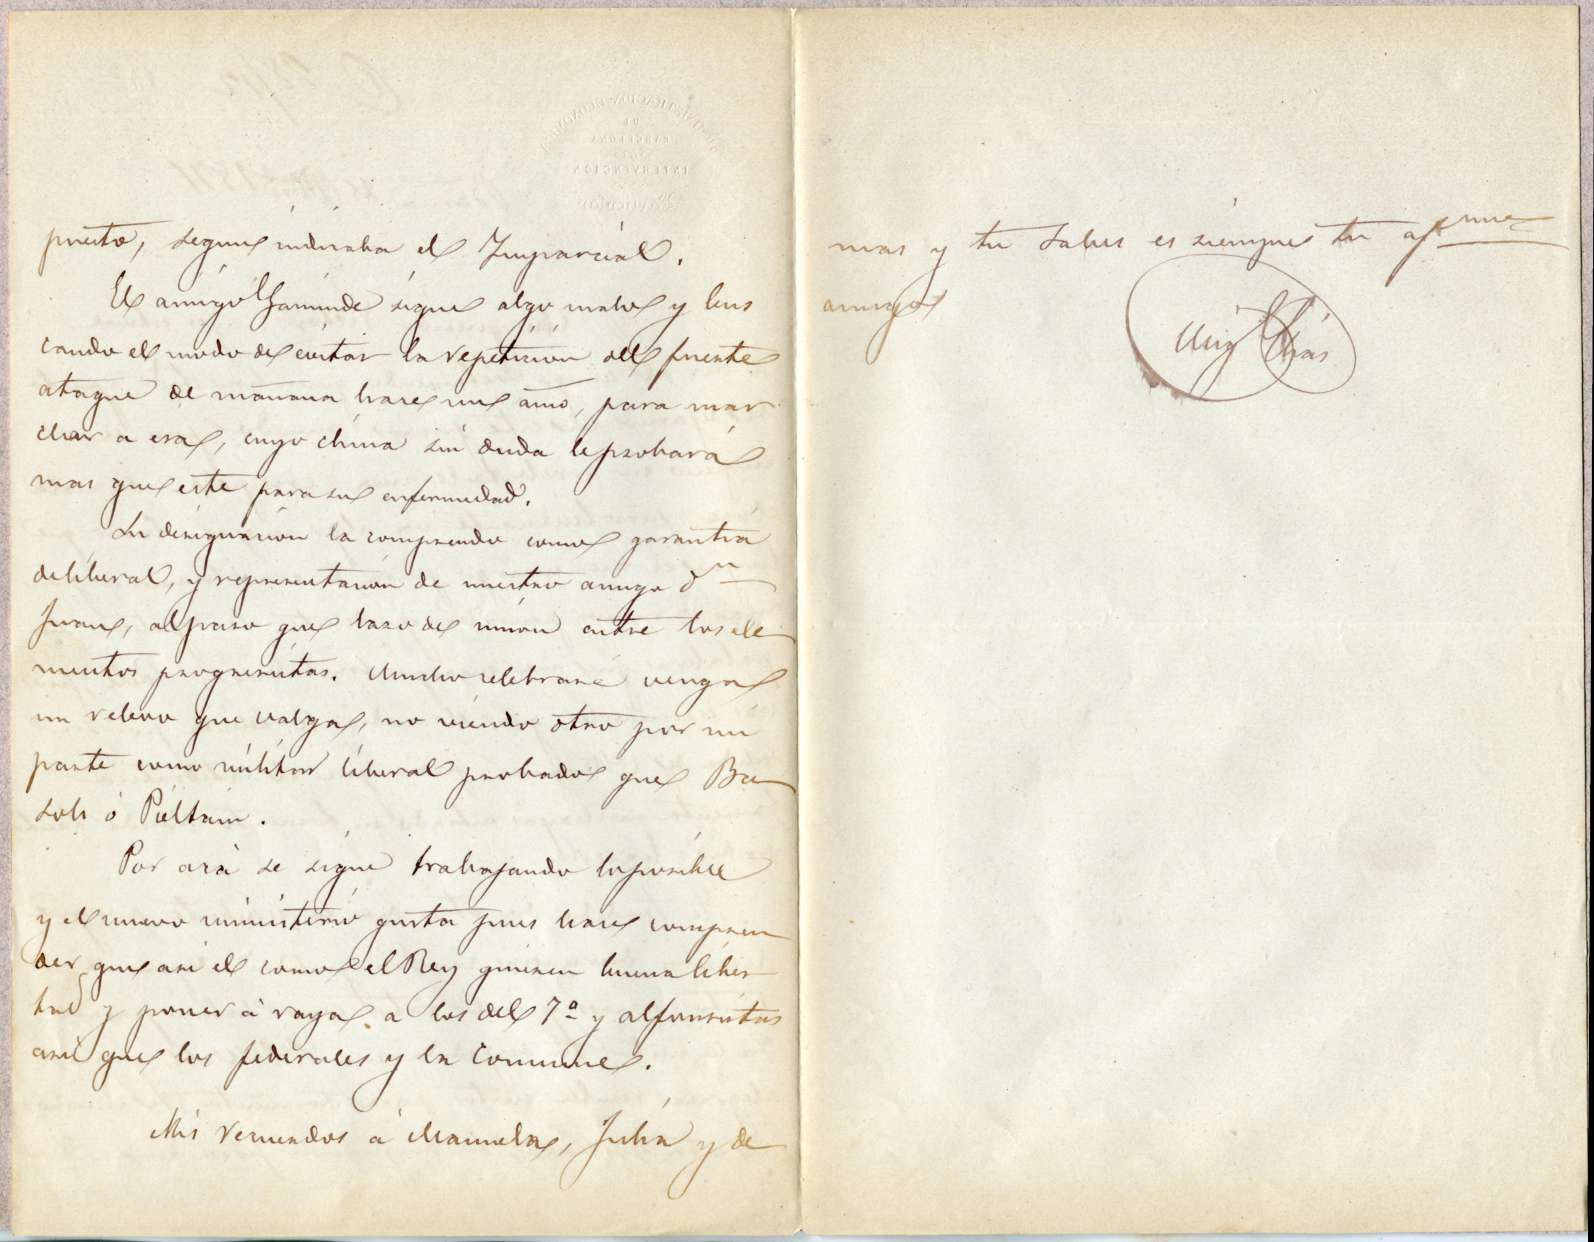 puesto, segun indicaba el Imparcial.
El amigo Gaminde sigue algo malo y bus
cando el modo de evitar la repeticion del fuerte
ataque de mañana hace un año, para mar
char a esa, cuyo clima sin duda le probará
mas que este para su enfermedad.
Su designacion la comprendo como garantia
de liberal, y representacion de nuestro amigo dn
Juan, al paso que lazo de union entre los ele
mentos progresistas. Mucho celebraré venga
un relevo que valga, no viendo otro por mi
parte como militar liberal probado que Ba
sols ó Pieltain.
Por acá se sigue trabajando lo posible
y el nuevo ministerio gusta pues hace compren
der que asi el como el Rey quieren buena liber
tad y poner á raya a los del 7º y alfonsistas
asi que los federales y la Comune.
Mis recuerdos á Manuela, Julia y de
mas y tu sabes es siempre tu afmo
amigo